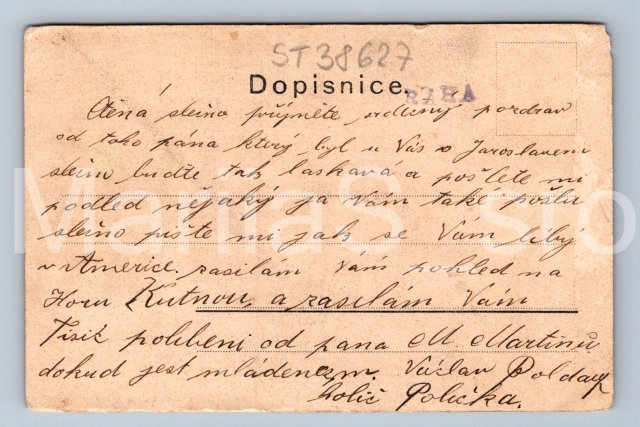 ST38627
Dopisnice.
RTHA
Ctěná slečno přijměte srdečný pozdrav
od toho pána který byl u Vás s Jaroslavem
slečno buďte tak laskavá a pošlete mi
podled nějaký ja Vám také pošlu
slečno pište mi jak se Vám líbý
v Americe. zasilám Vám pohled na
Horu Kutnou a zasilám Vám
Tisíc polibeni od pana M. Martinů
dokud jest mládencem. Václav
Polička.